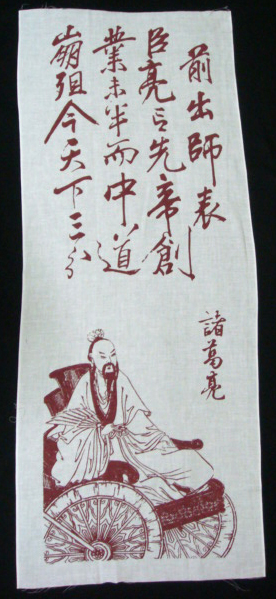 前出師表
臣亮言先帝創
業未半而中道
崩殂今天下三分
諸葛亮